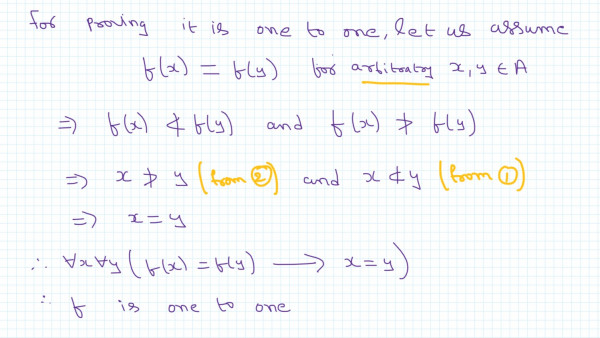 for proving it is one to one, let us assume
f(x) = f(y) for arbitratry x, y ∈ A
⇒ f(x) ≮ f(y) and f(x) ≯ f(y)
⇒ x ≯ y (from ②) and x ≮ y (from ①)
⇒ x = y
∴ ∀x∀y (f(x) = f(y) ⟶ x = y)
∴ f is one to one